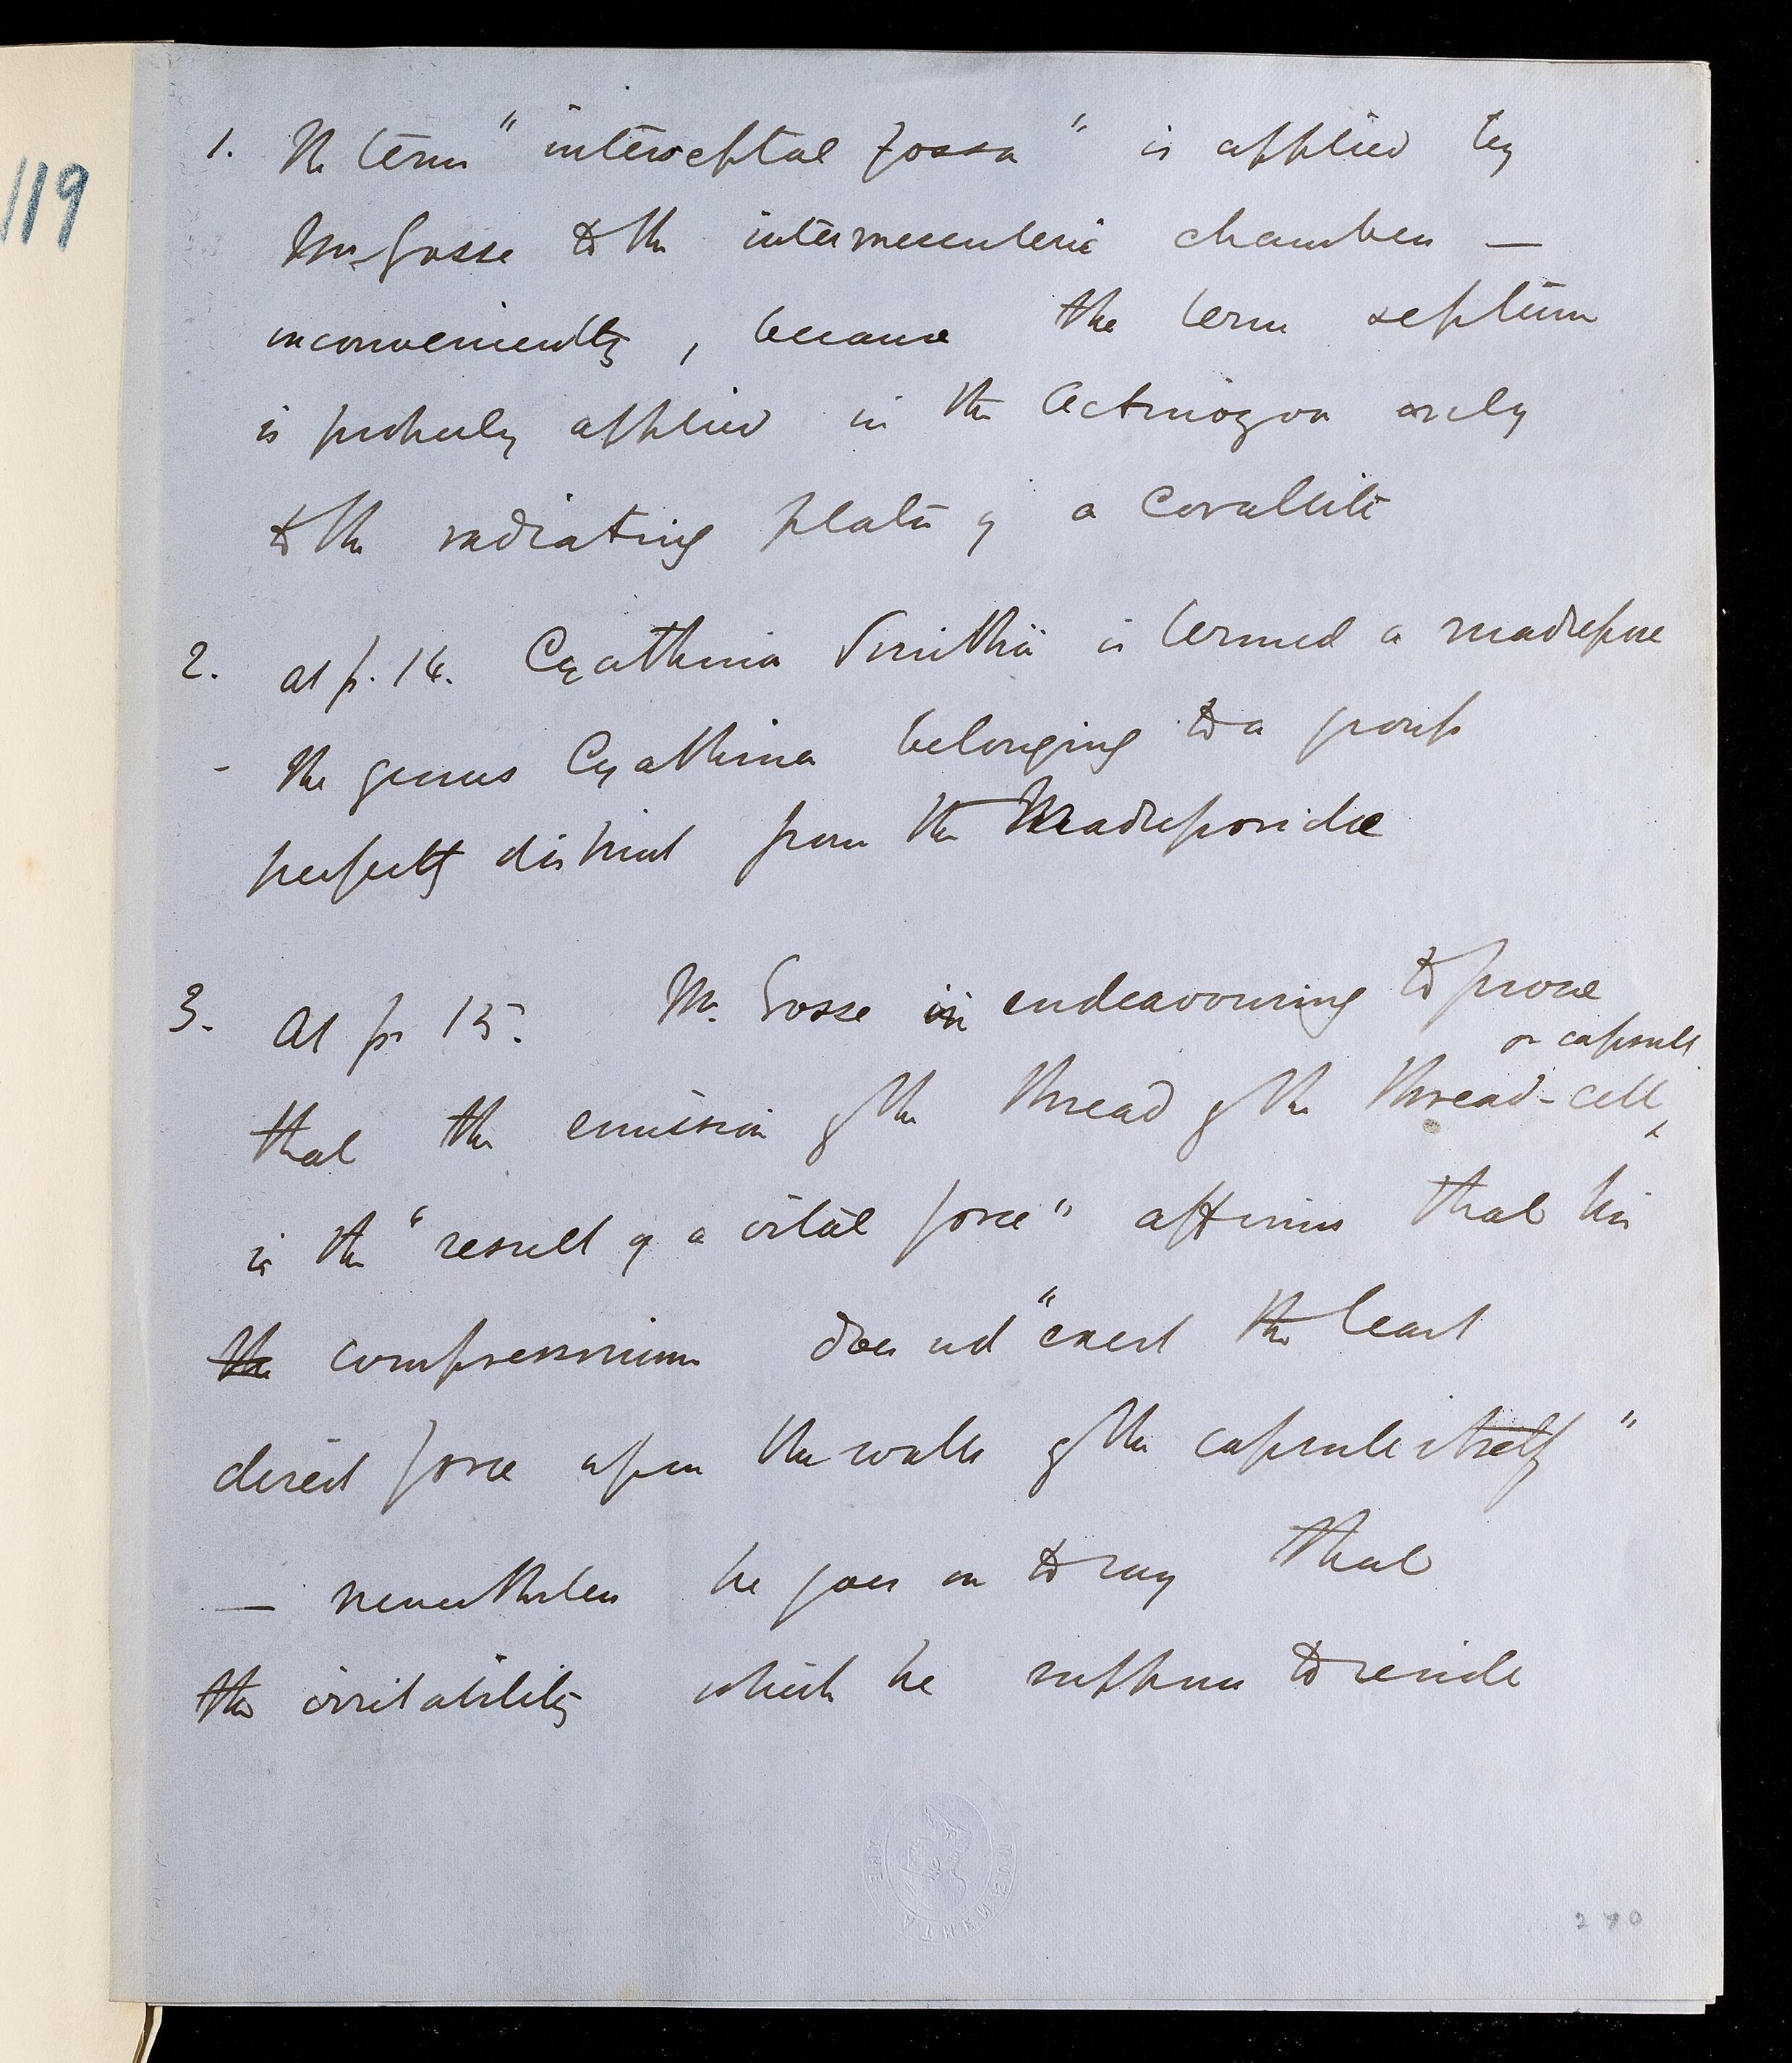 119
1. The term "interseptal fossa" is applied by
Mr. Gosse to the intermesenteric chambers —
inconveniently, because the term septum
is properly applied in the Actinozoa only
to the radiating plates of a Corallite
2. At p. 14. Cyathina Smithii is termed a madrepore
- the genus Cyathina belonging to a group
perfectly distinct from the Madreporidae
3. At p. 15. Mr. Gosse in endeavouring to prove
or capsule
that the emission of the thread of the thread-cell
is the "result of a vital force" affirms that his
the compressorium does not "exert the least
direct force upon the walls of the capsule itself"
— nevertheless he goes on to say that
the irritability which he supposes to reside
THE ATHENAEUM
270